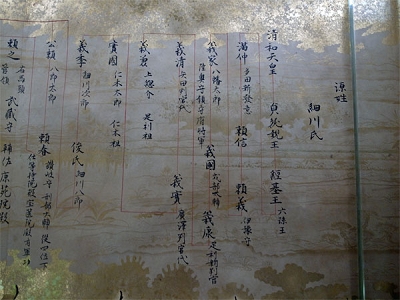 源姓
細川氏
清和天皇 貞純親王 經基王 六孫王
滿仲 多田新發意 頼信 頼義 伊豫守
義家 八幡太郎 義國 式部大輔 義康 足利新判官
陸奥守鎮守府将軍
義清 矢田判官代 義實 廣澤判官代
義兼 上総介 足利祖
實國 仁木太郎 仁木祖
義季 細川次郎 俊氏 細川八郎
公頼 八郎太郎 頼春 讃岐守 刑部大輔 從四位下
頼之 右馬頭 武蔵守 頼佐
管領